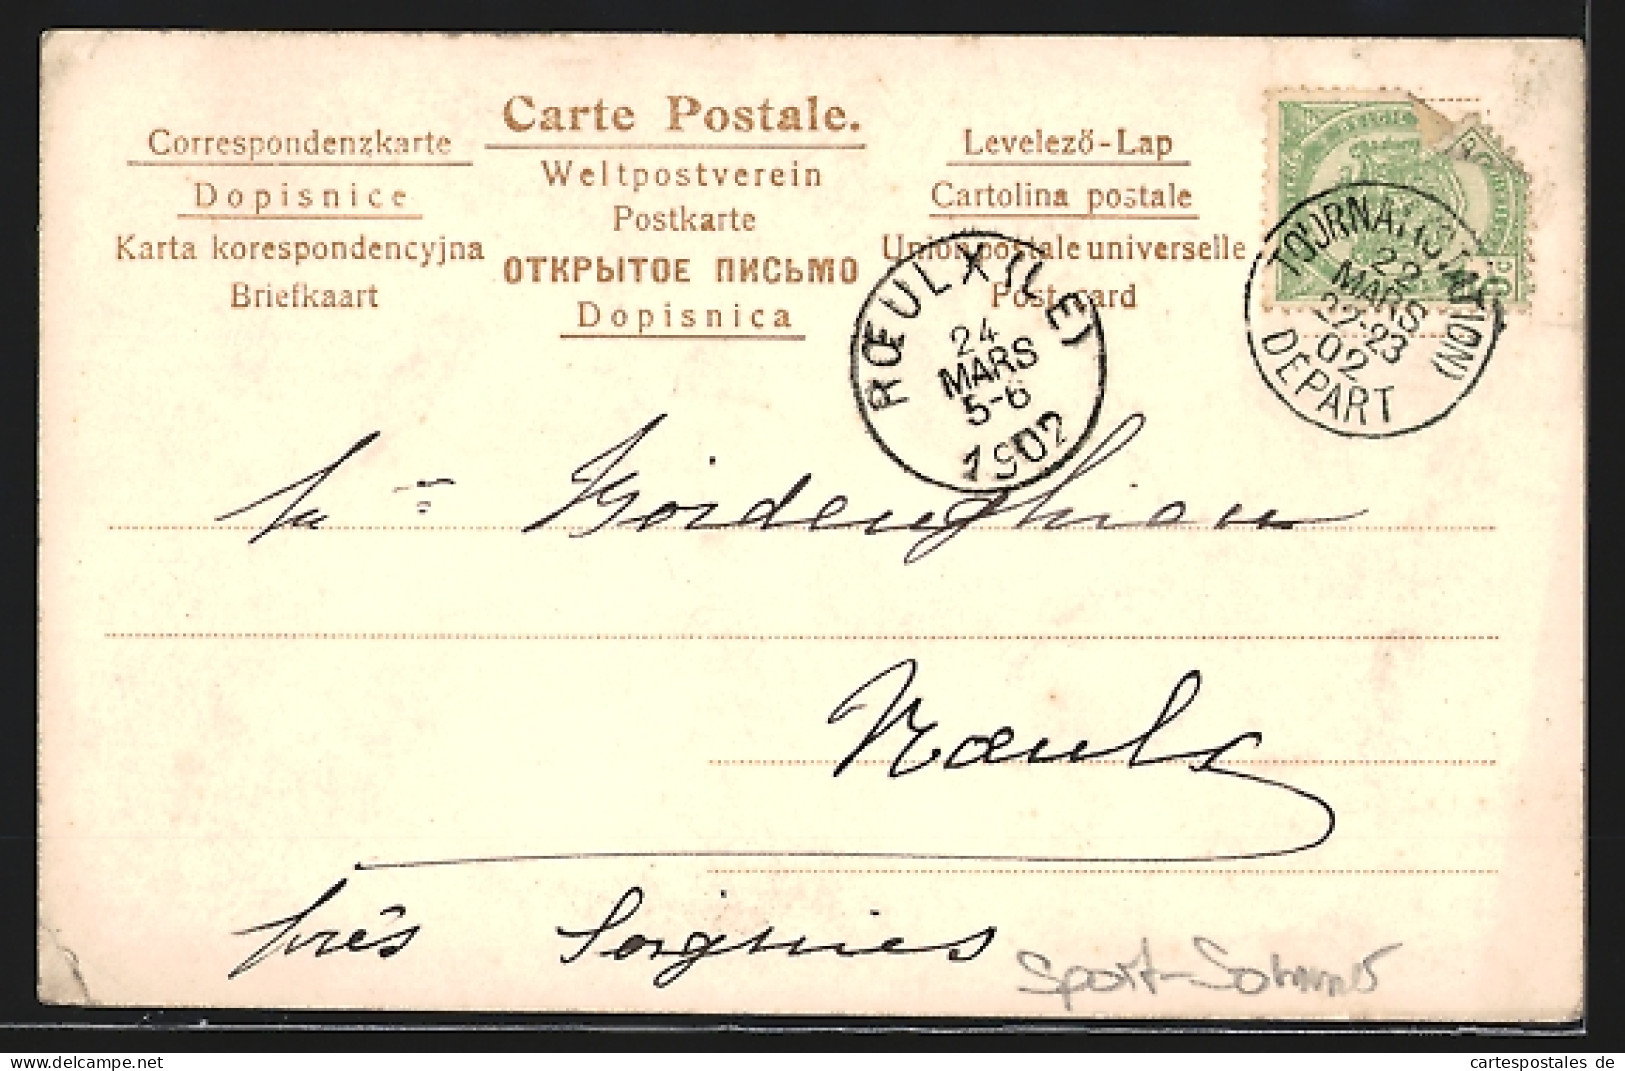 Carte Postale.
Correspondenzkarte
Dopisnice
Karta korespondencyjna
Briefkaart
Weltpostverein
Postkarte
ОТКРЫТОЕ ПИСЬМО
Dopisnica
Levelező-Lap
Cartolina postale
Union postale universelle
Post card
RŒULX (LE)
24
MARS
5-6
1902
TOURNAI (STATION)
22
MARS
22-23
02
DÉPART
Rœulx
près Soignies
Sport-Sommer
delcampe.net
cartespostales de